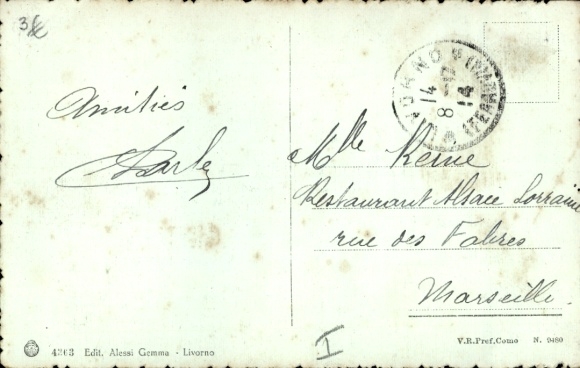 3€
Amitiés
Mlle Reine
Restaurant Alsace Lorraine
rue des Fabres
Marseille.
I
4363 Edit. Alessi Gemma - Livorno
V.R.Pref.Como N. 9480
14
8
14